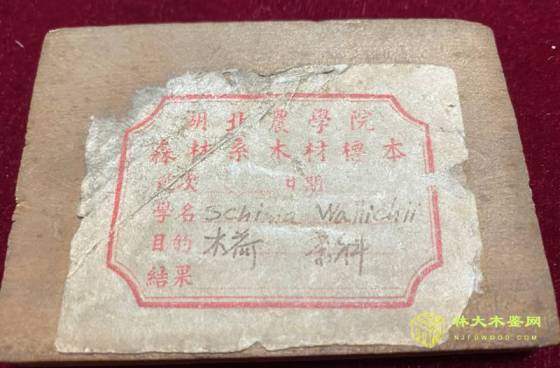 湖北農學院
森林系木材標本
批次 日期
學名 Schima Wallichii
目的 木荷 茶科
結果
林大木鉴网
NJFUWOOD.COM